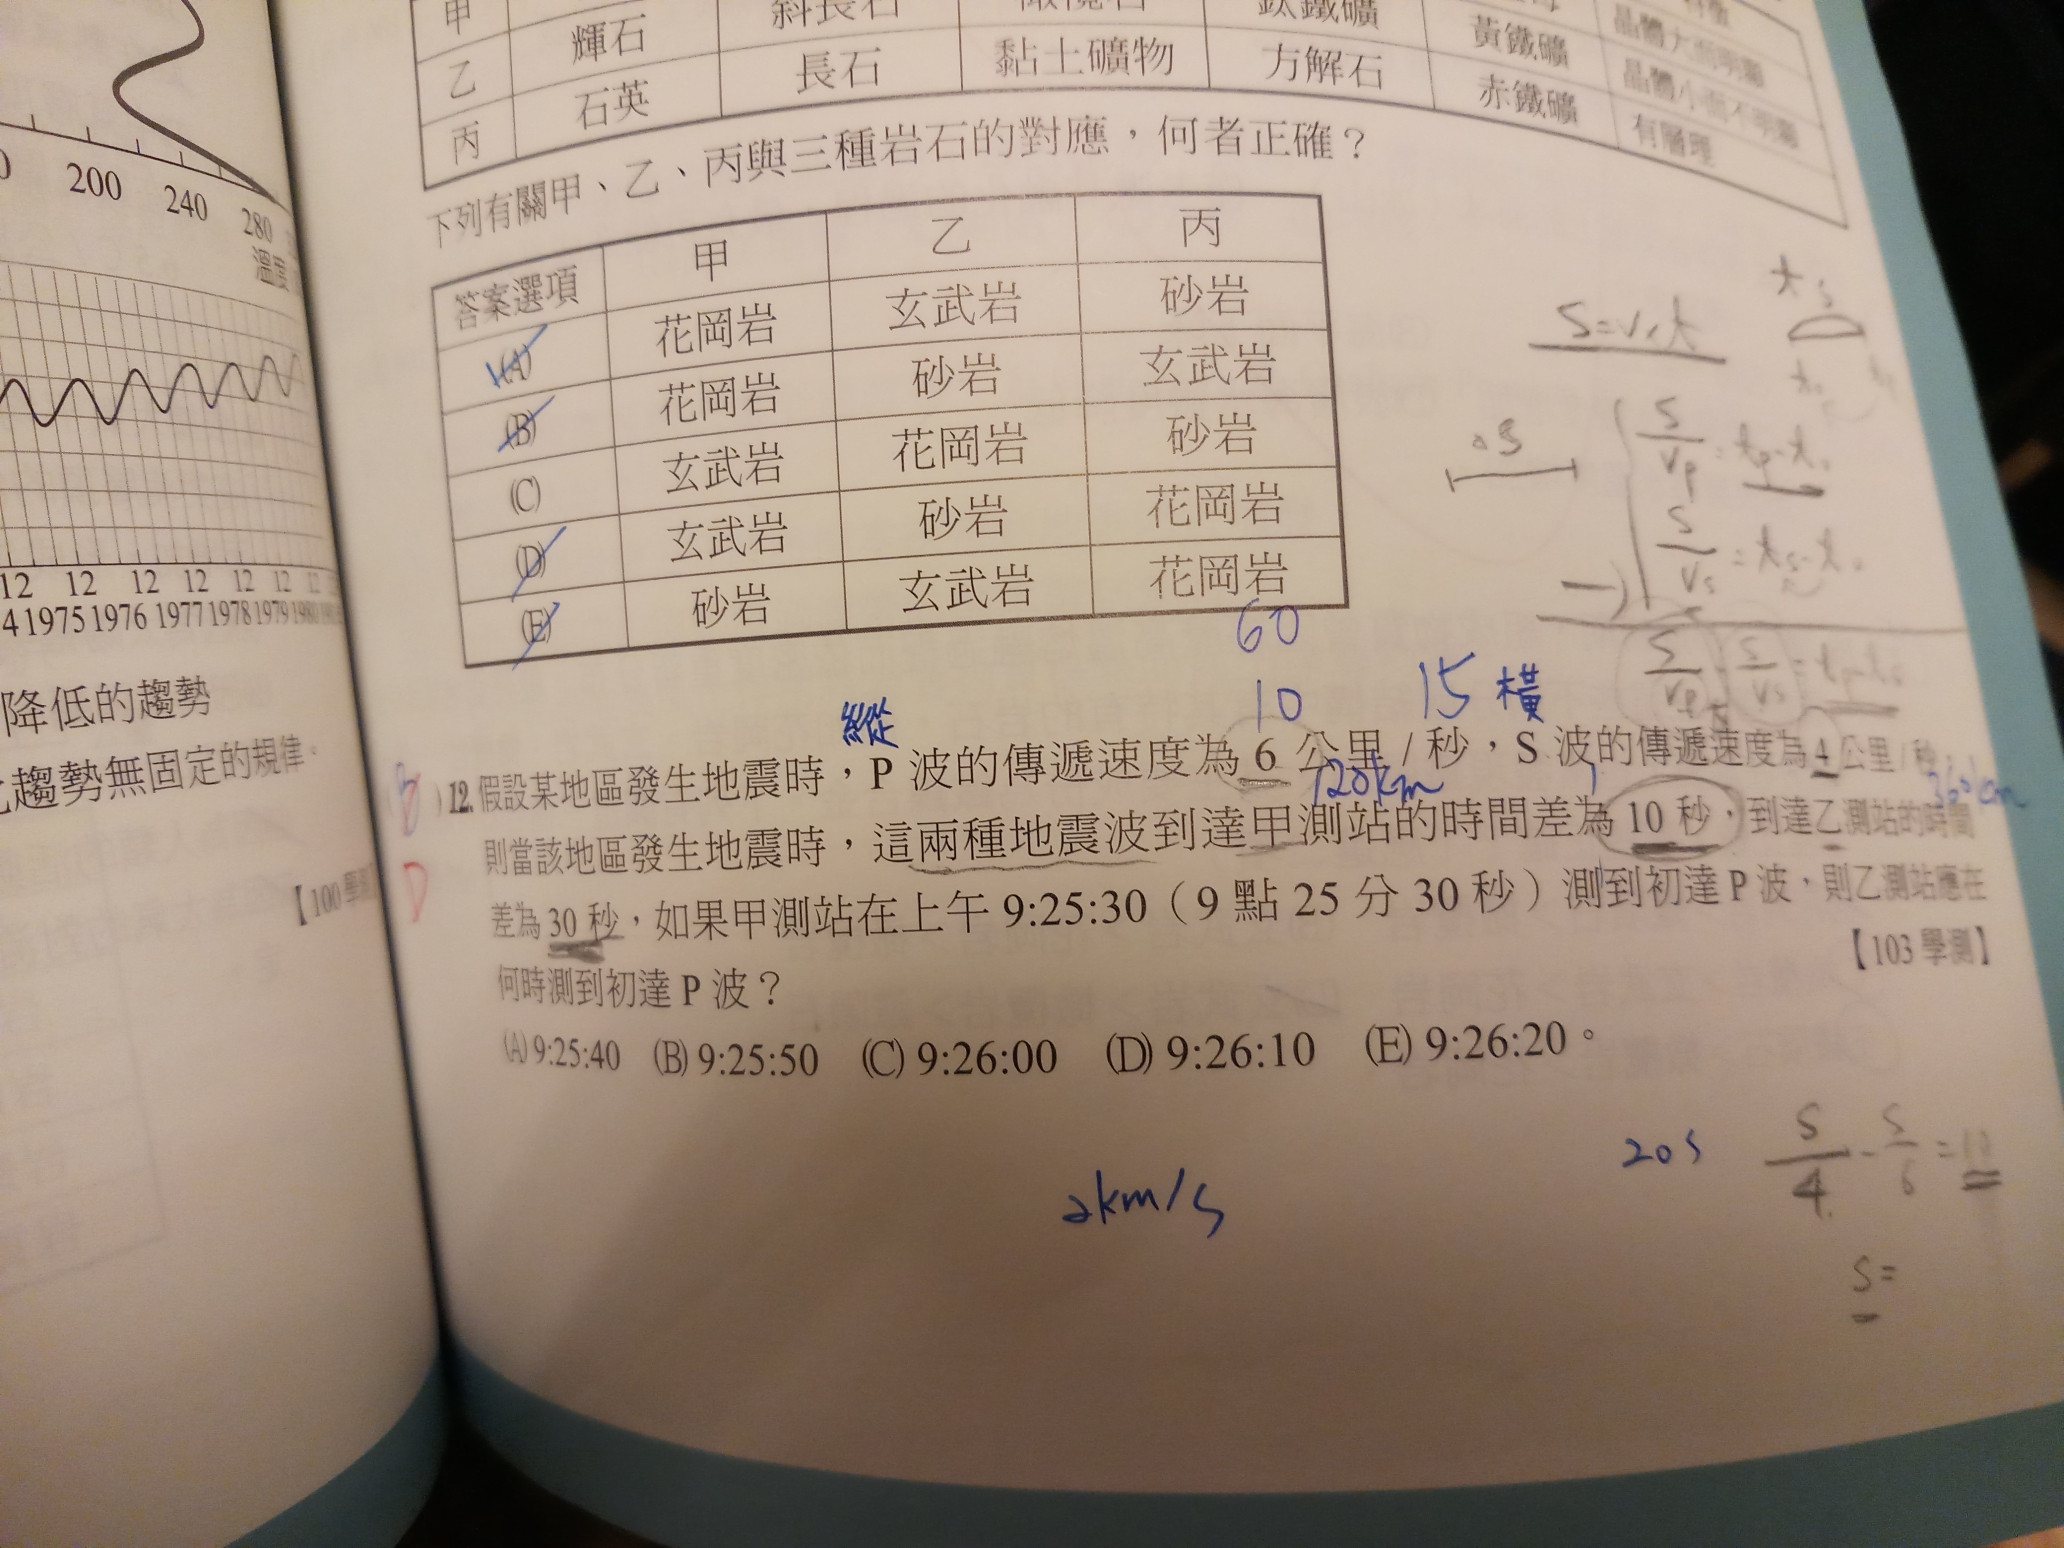 甲
乙 輝石 斜長石 橄欖石 鈦鐵礦 晶體大而明顯
丙 石英 長石 黏土礦物 方解石 黃鐵礦 晶體小而不明顯
赤鐵礦 有層理
下列有關甲、乙、丙與三種岩石的對應，何者正確？
答案選項 甲 乙 丙
(A) 花岡岩 玄武岩 砂岩
(B) 花岡岩 砂岩 玄武岩
(C) 玄武岩 花岡岩 砂岩
(D) 玄武岩 砂岩 花岡岩
(E) 砂岩 玄武岩 花岡岩
60
縱 10 15 橫
12. 假設某地區發生地震時，P 波的傳遞速度為 6 公里 / 秒，S 波的傳遞速度為 4 公里 / 秒，
120km 360km
則當該地區發生地震時，這兩種地震波到達甲測站的時間差為 10 秒，到達乙測站的時間
差為 30 秒，如果甲測站在上午 9:25:30（9 點 25 分 30 秒）測到初達 P 波，則乙測站應在
何時測到初達 P 波？
【103 學測】
(A) 9:25:40 (B) 9:25:50 (C) 9:26:00 (D) 9:26:10 (E) 9:26:20。
B
D
2km/s
20s
S/4 - S/6 = 10
S=
S=V×t
ΔS
S/Vp = tp-t₀
S/Vs = ts-t₀
S/Vp - S/Vs = tp-ts
200 240 280
溫度
12 12 12 12 12 12 12
4 1975 1976 1977 1978 1979 1980
降低的趨勢
趨勢無固定的規律。
【100 學測